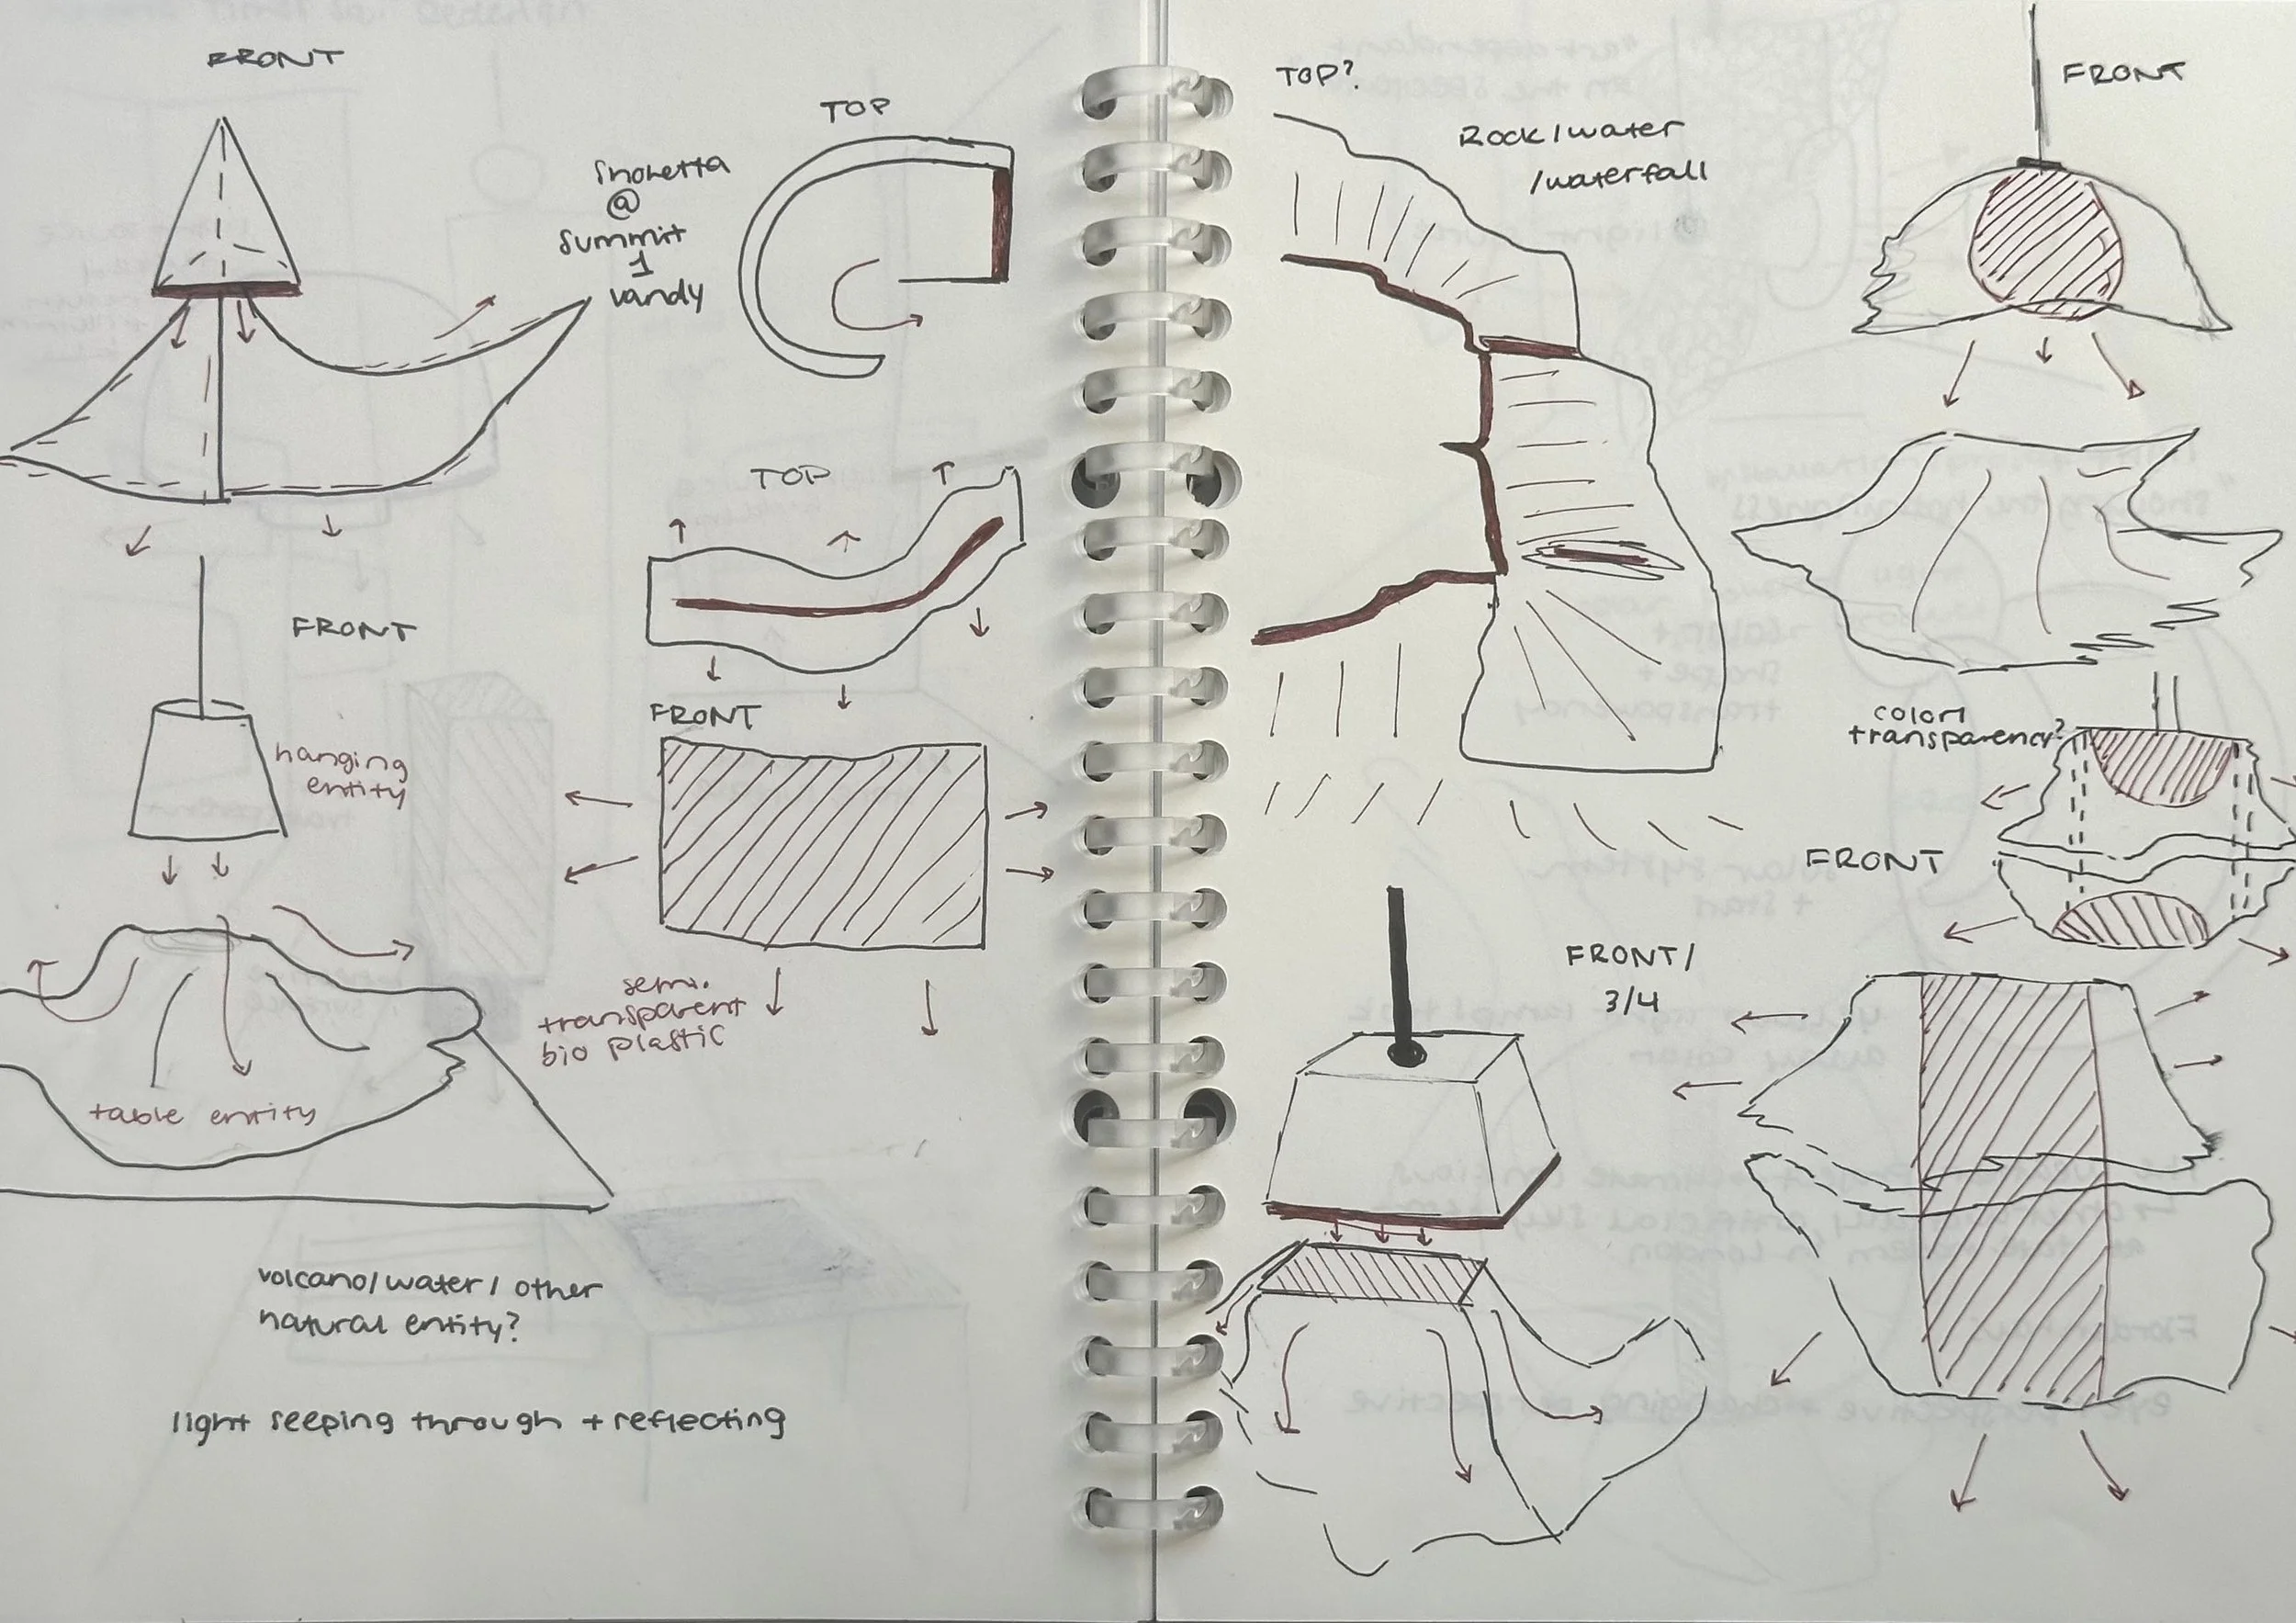 FRONT
TOP
Snohetta
@
summit
1
vandy
TOP
FRONT
hanging
entity
FRONT
semi.
transparent
bio plastic
table entity
volcano/water/other
natural entity?
light seeping through + reflecting
TOP?
Rock/water
/waterfall
FRONT
color/
transparency?
FRONT
FRONT/
3/4